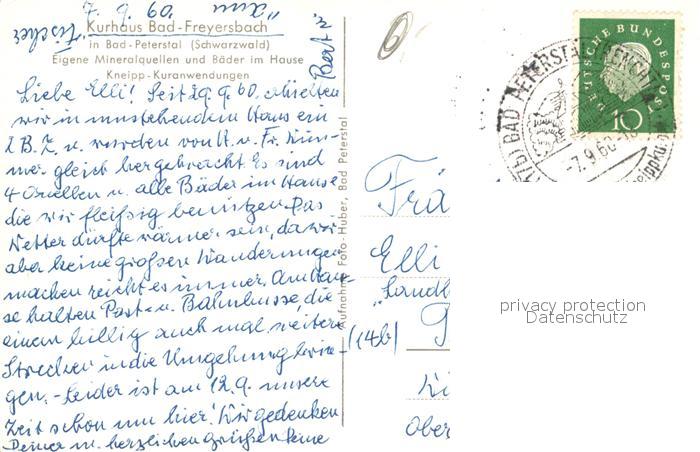 7. 9. 60.
Kurhaus Bad-Freyersbach
in Bad-Peterstal (Schwarzwald)
Eigene Mineralquellen und Bäder im Hause
Kneipp-Kuranwendungen
Liebe Elli! Seit 29. 9. 60. erhielten
wir in umstehendem Haus ein
2 B. Z. u. wurden von H. u. Fr. Zim-
mer gleich hergebracht. Es sind
4 Quellen u. alle Bäder im Hause
die wir fleißig benützen. Das
Wetter dürfte wärmer sein, da wir
aber keine großen Wanderungen
machen reicht es immer. Am Hau-
se halten Post- u. Bahnbusse, die
einem billig auch mal weitere
Strecken in die Umgebung brin-
gen. - Leider ist am 12. 9. unsere
Zeit schon um hier! Wir gedenken
Deiner m. herzlichen Grüßen
Aufnahme Foto-Huber, Bad Peterstal
DEUTSCHE BUNDESPOST
10
BAD PETERSTAL
-7.9.60
Frä
Elli
(14b)
Ober
privacy protection
Datenschutz